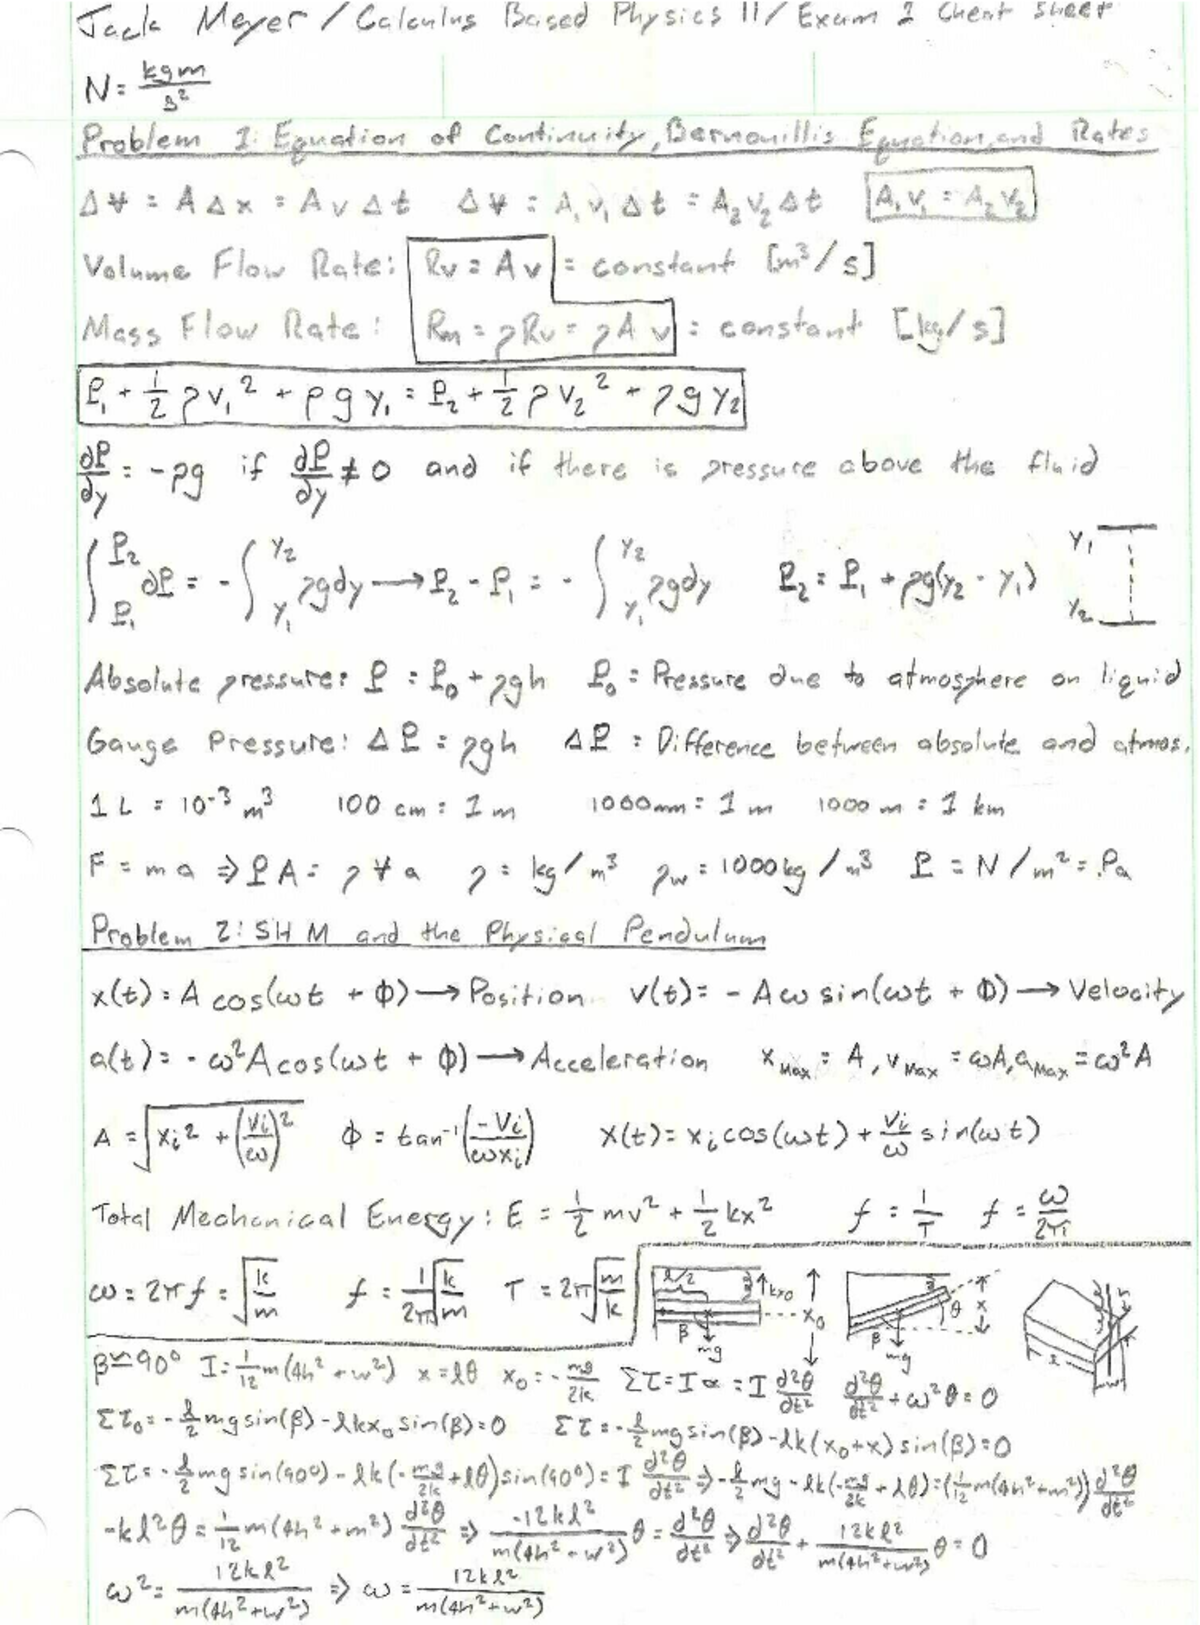 Jack Meyer / Calculus Based Physics II / Exam 1 Cheat Sheet
N = kgm/s²
Problem 1: Equation of Continuity, Bernouillis Equation, and Rates
ΔV = AΔx = AvΔt ΔV = A₁v₁Δt = A₂v₂Δt A₁v₁ = A₂v₂
Volume Flow Rate: Rv = Av = constant [m³/s]
Mass Flow Rate: Rm = ρRv = ρAv = constant [kg/s]
P₁ + 1/2 ρv₁² + ρgy₁ = P₂ + 1/2 ρv₂² + ρgy₂
∂P/∂y = -ρg if ∂P/∂y ≠ 0 and if there is pressure above the fluid
∫_P₁^P₂ ∂P = -∫_y₁^y₂ ρgdy → P₂ - P₁ = -∫_y₁^y₂ ρgdy P₂ = P₁ + ρg(y₂ - y₁) y₁ y₂
Absolute pressure: P = P₀ + ρgh P₀ = Pressure due to atmosphere on liquid
Gauge Pressure: ΔP = ρgh ΔP = Difference between absolute and atmos.
1 L = 10⁻³ m³ 100 cm = 1 m 1000mm = 1 m 1000 m = 1 km
F = ma ⇒ PA = ρVa ρ = kg/m³ ρw = 1000kg/m³ P = N/m² = Pa
Problem 2: SHM and the Physical Pendulum
x(t) = A cos(ωt + Φ) → Position v(t) = -Aω sin(ωt + Φ) → Velocity
a(t) = -ω²A cos(ωt + Φ) → Acceleration xMax = A, vMax = ωA, aMax = ω²A
A = √(xi² + (vi/ω)²) Φ = tan⁻¹(-vi/ωxi) x(t) = xi cos(ωt) + vi/ω sin(ωt)
Total Mechanical Energy: E = 1/2 mv² + 1/2 kx² f = 1/T f = ω/2π
ω = 2πf = √(k/m) f = 1/2π √(k/m) T = 2π√(m/k) l/2 kx₀ x₀ β mg θ x β mg h l w
β≃90° I = 1/12 m(4h² + w²) x = lθ x₀ = -mg/2k Στ = Iα = I d²θ/dt² d²θ/dt² + ω²θ = 0
Στ₀ = -l/2 mg sin(β) - lkx₀ sin(β) = 0 Στ = -l/2 mg sin(β) - lk(x₀+x) sin(β) = 0
Στ = -l/2 mg sin(90°) - lk(-mg/2k + lθ) sin(90°) = I d²θ/dt² ⇒ -l/2 mg - lk(-mg/2k + lθ) = (1/12 m(4h² + w²)) d²θ/dt²
-kl²θ = 1/12 m(4h² + w²) d²θ/dt² ⇒ -12kl²/m(4h² + w²) θ = d²θ/dt² ⇒ d²θ/dt² + 12kl²/m(4h² + w²) θ = 0
ω² = 12kl²/m(4h² + w²) ⇒ ω = 12kl²/m(4h² + w²)